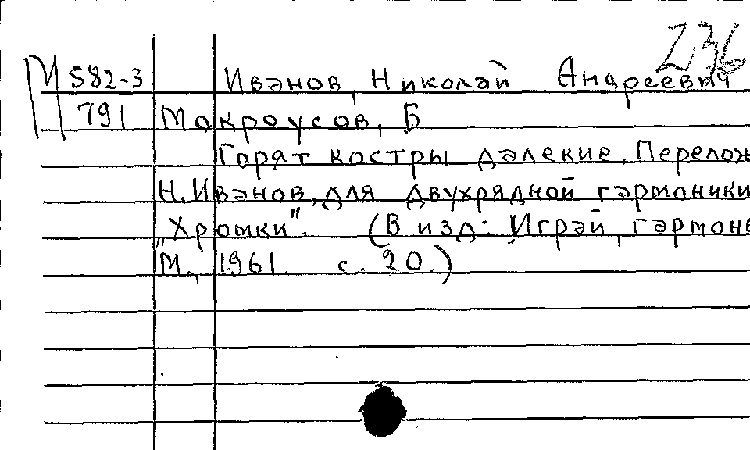 236
М 582-3 Иванов, Николай Андреевич
791 Мокроусов, Б
Горят костры далекие. Перелож
Н. Иванов, для двухрядной гармоники
„Хромки". (В изд: Играй, гармонь
М., 1961 с. 20.)